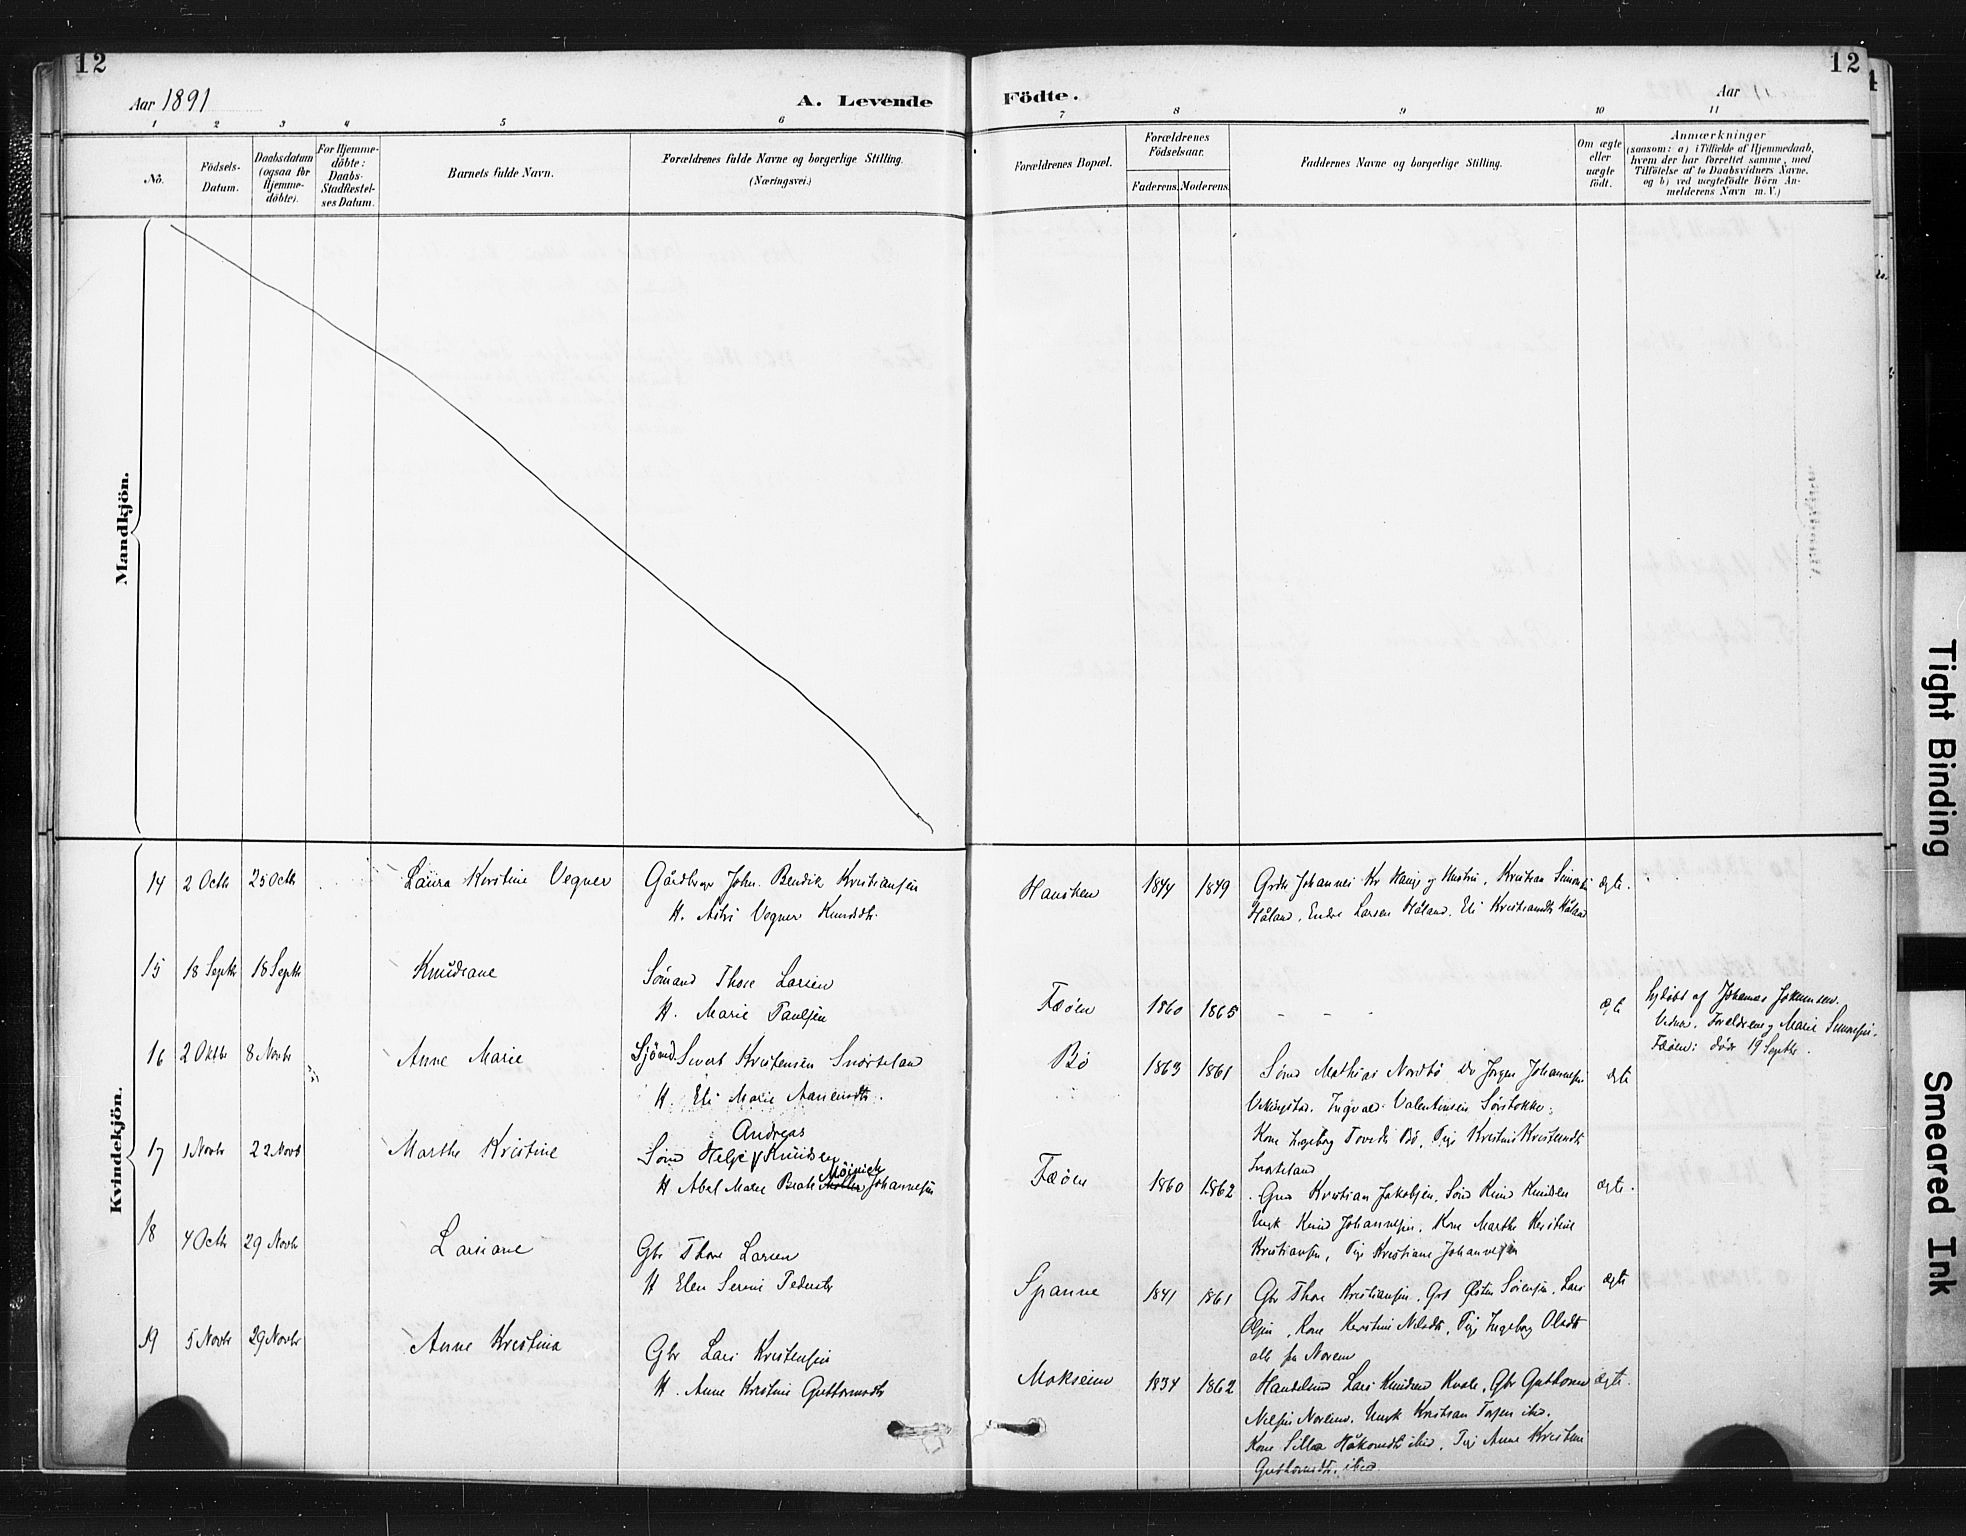 12
12
Aar 1891
A. Levende
Födte.
Aar
1
2
3
4
5
6
7
8
9
10
11
No.
Födsels-
Datum.
Daabsdatum
(ogsaa for
Hjemme-
döbte).
For Hjemme-
döbte:
Daabs-
Stadfæstel-
ses Datum.
Barnets fulde Navn.
Forældrenes fulde Navne og borgerlige Stilling.
(Næringsvei.)
Forældrenes Bopæl.
Forældrenes
Födselsaar.
Faderens.
Moderens.
Faddernes Navne og borgerlige Stilling.
Om ægte
eller
uægte
födt.
Anmærkninger
(saasom: a) i Tilfælde af Hjemmedaab,
hvem der har forrettet samme, med
Tilföielse af to Daabsvidners Navne.
og b) ved uægtefödte Börn An-
melderens Navn m. V.)
Mandkjön.
Kvindekjön.
14 2 Octb 25 Octb Laura Kirstine Vegner Gårdbrger Johs. Bendik Kristiansen
H. Astri Vegner Knudsdtr.
Hausken 1844 1849 Grdbr Johannes Kr Hauge og Hustru, Kristian Simonsen ægte.
Håland, Endre Larsen Håland, Eli Kristiansdtr Håland
15 18 Septb 18 Septb Knudiane Sömand Thore Larsen
H. Marie Paulsen
Fæöen 1860 1865 - - - ægte
hjdöbt af Johannes
Vidner, Foreldrene og Marie
Fæöen: döde 19 Septbr.
16 2 Oktbr 8 Novbr Anne Marie Sjömd. Sivert Kristensen Snörteland
H. Eli Marie
Bö 1863 1861 Sömd Mathias Nordbö Do Jörgen Johannesen ægte
Vikingstad. Ingvald Valentinsen Sörstokke,
Kone Ingeborg Bö, Pige Kristine Kristensdtr
Snörteland
17 1 Novbr 22 Novb Marthe Kristine
Andreas
Sömd Helge Knudsen
H Abel Marie Beate Johannesen
Fæöen 1860 1862 Grd Kristian Jakobsen, Sömd Knud Knudsen ægte.
Ungk Knud Johannesen, Kone Marthe Kirstine
Kristiansen, Pige Kristiane Johannesen
18 4 Octb 29 Novbr Larsiane Gbr Thore Larsen
H Elen Serine Pedersdtr
Spanne 1841 1861 Gbr Thore Kristiansen, Gbr Østen Sörensen, Lars ægte
Olsen, Kone Kirstine Nilsdtr, Pige Ingeborg Olsdtr
alle fra Norem
19 5 Novbr 29 Novbr Anne Kristina Gbr Lars Kristensen
H. Anne Kristine Guttormsdtr
Mokseim 1834 1862 Handelsmd Lars Knudsen Kvale, Gbr Guthorm ægte.
Nilsen Norem. Ungk Kristian ibid.
Kone Silla Håkonsdtr ibid, Pige Anne Kristine
Guthormsdtr. ibid.
Tight Binding
Smeared Ink